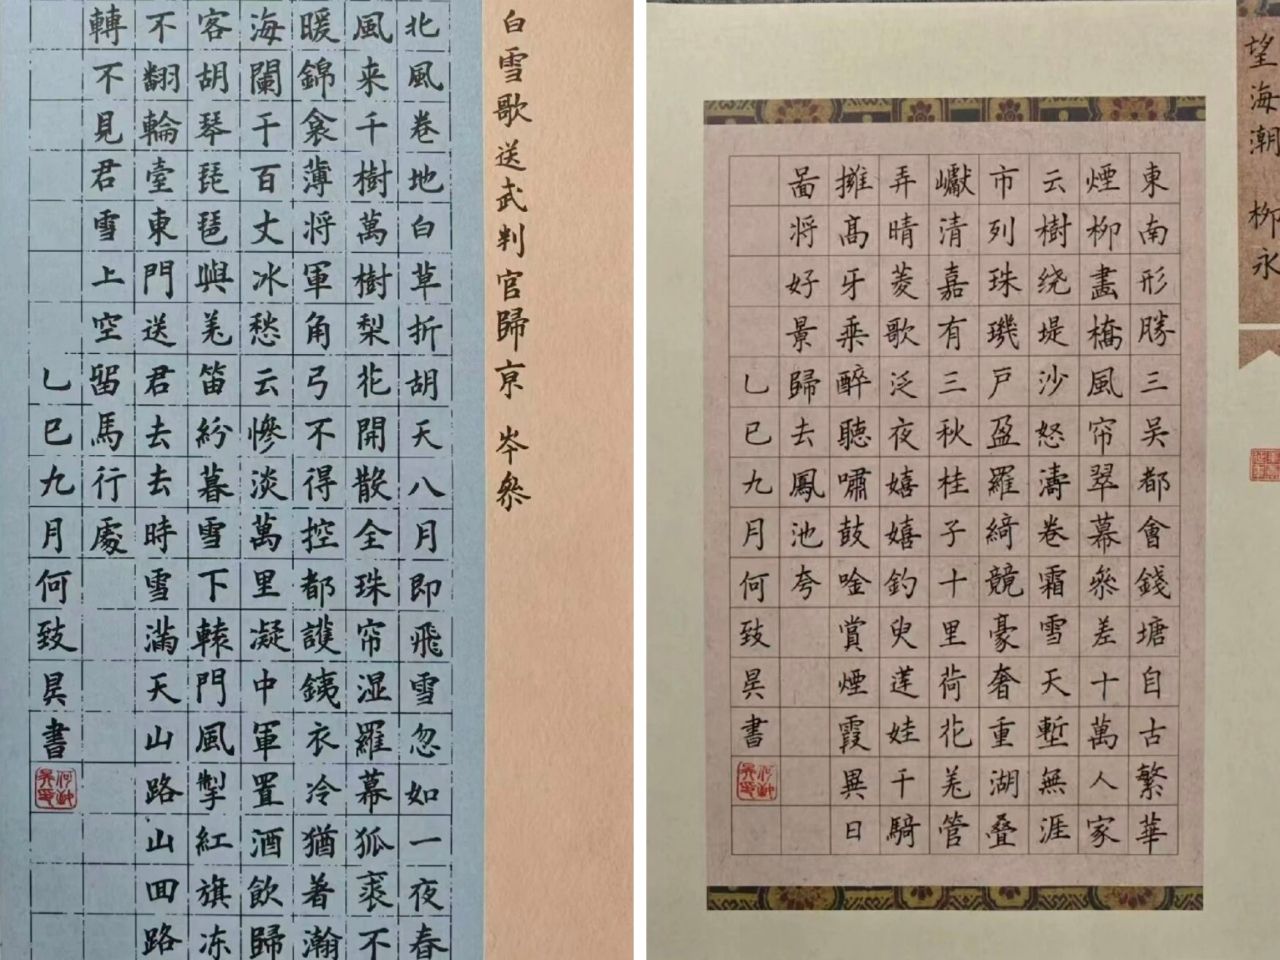 白雪歌送武判官歸京 岑叅
北風卷地白草折胡天八月即飛雪忽如一夜春
風来千樹萬樹梨花開散全珠帘湿羅幕狐裘不
暖錦衾薄将軍角弓不得控都護銕衣冷猶著瀚
海闌干百丈冰愁云慘淡萬里凝中軍置酒飲歸
客胡琴琵琶與羌笛紛暮雪下轅門風掣紅旗冻
不翻輪臺東門送君去去時雪滿天山路山回路
轉不見君雪上空留馬行處
乙巳九月何致昊書
何致昊印
望海潮 柳永
東南形勝三吴都會錢塘自古繁華
煙柳畫橋風帘翠幕叅差十萬人家
云樹绕堤沙怒濤卷霜雪天塹無涯
市列珠璣戶盈羅綺競豪奢重湖叠
巘清嘉有三秋桂子十里荷花羌管
弄晴菱歌泛夜嬉嬉釣叟莲娃千騎
擁高牙乘醉聽嘯鼓吟賞煙霞異日
啚将好景歸去鳳池夸
乙巳九月何致昊書
何致昊印